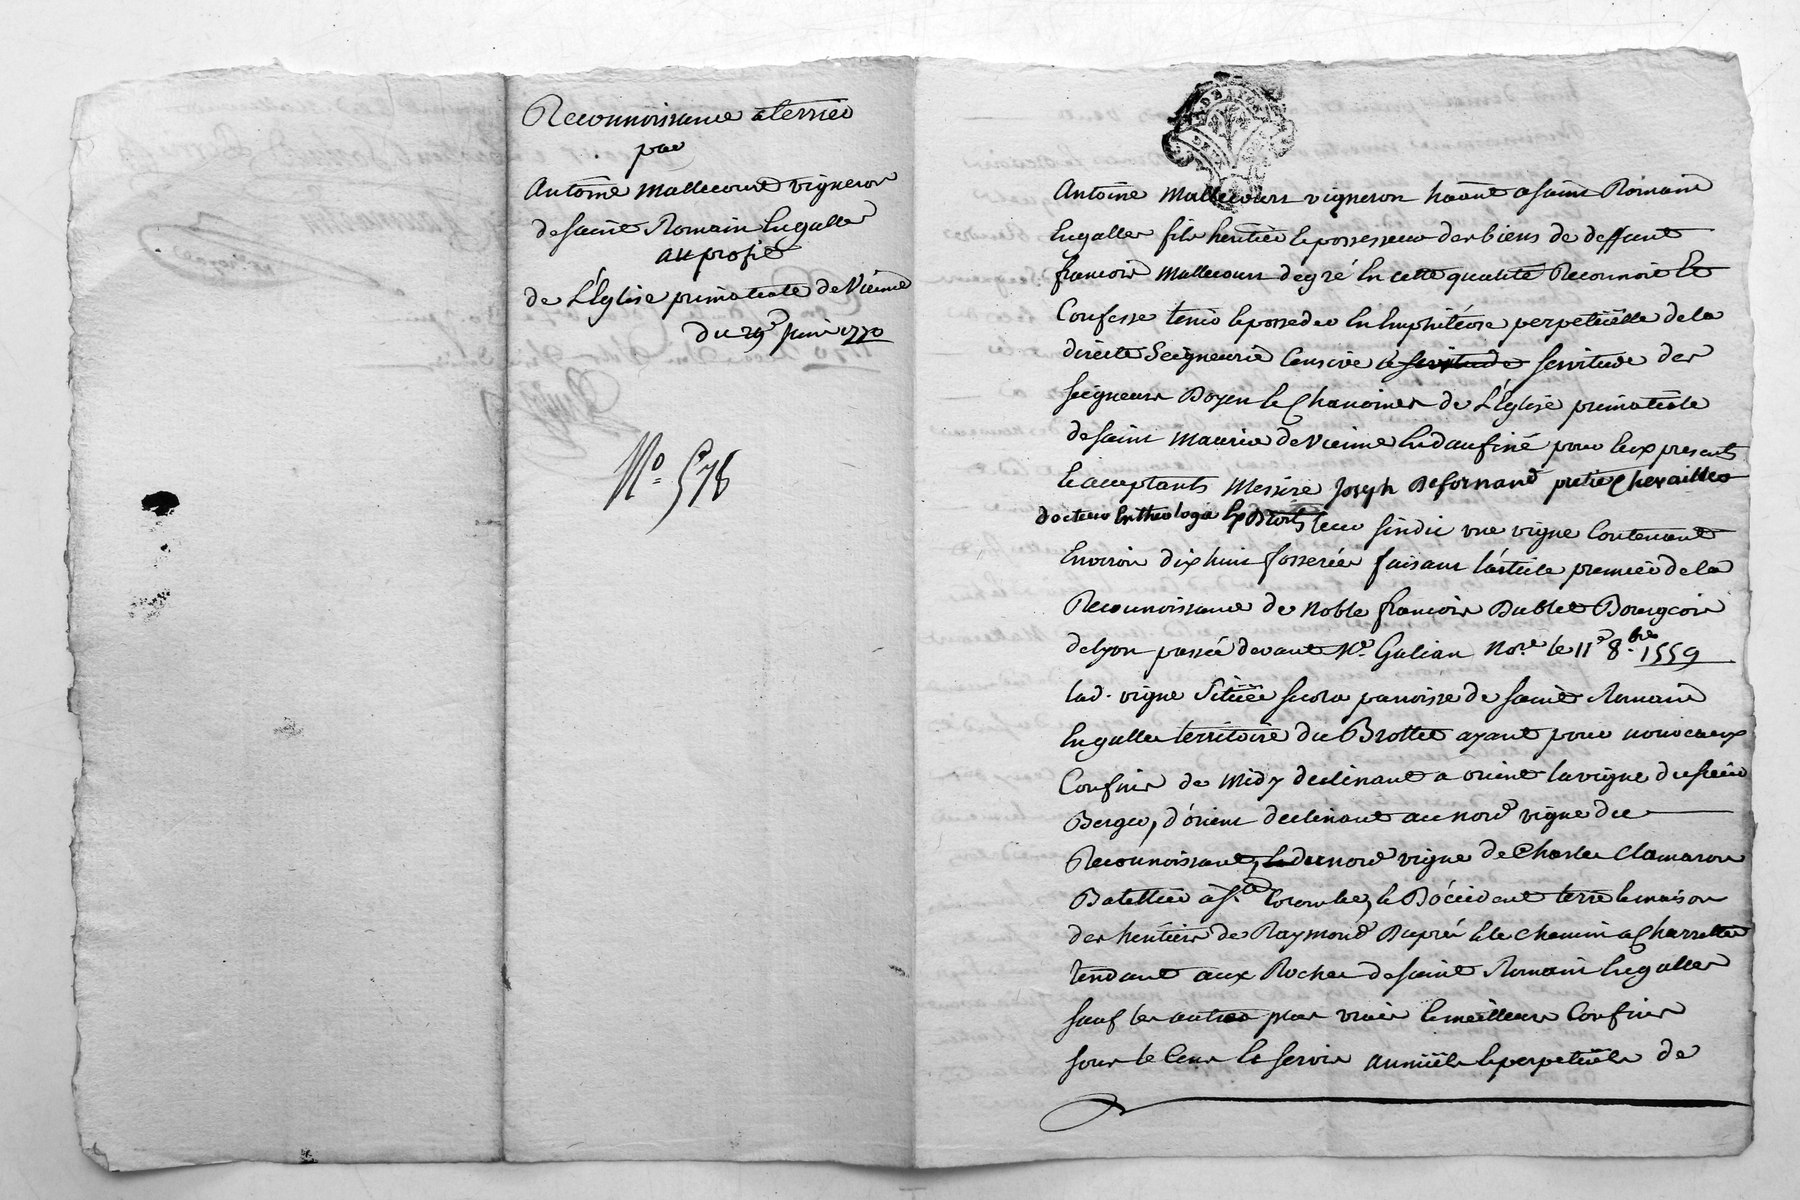 Reconnoissance a terrier
par
Antoine Mallecourt vigneron
de saint Romain Engalles
au profit
de L'Eglise primatiale de Vienne
du 29e juin 1770
No. 578
Antoine Mallecourt vigneron haant a saint Romain
Engalles fils heritier & possesseur des biens de deffunt
francois Mallecourt de gré En cette qualité Reconnoit Et
Confesse tenir & posseder En Emphiteose perpetuëlle de la
directe Seigneurie Censive & servitude servitude des
seigneurs Doyen & Chanoines de L'Eglise primatiale
de saint Maurice de Vienne En daufiné pour Eux presents
& acceptants Messire Joseph Defornand pretre Chevaillier
docteur En theologie leur sindic une vigne Contenant
Environ dix huit fosserées faisant l'article premier de la
Reconnoissance de Noble francois Dublet Bourgeois
de lyon passée devant Me. Galian Nore. le 11e 8.bre 1559
lad. vigne Sittuée sur la parroisse de saint Romain
Engalles territoire du Brottet ayant pour nouveaux
Confins de midy declinant a orient la vigne du sieur
Berger, d'orient declinant au nord vigne du
Reconnoissant, & du nord vigne de Charles Clamaron
Batellier à Ste. Colombe, & D'occident terre & maison
des heritiers de Raymond Dupré & le chemin a Charrette
tendant aux Roches de saint Romain Engalles
sauf les autres plus vrais & meilleurs Confins
sous le Cens & servis annuël & perpetuël de